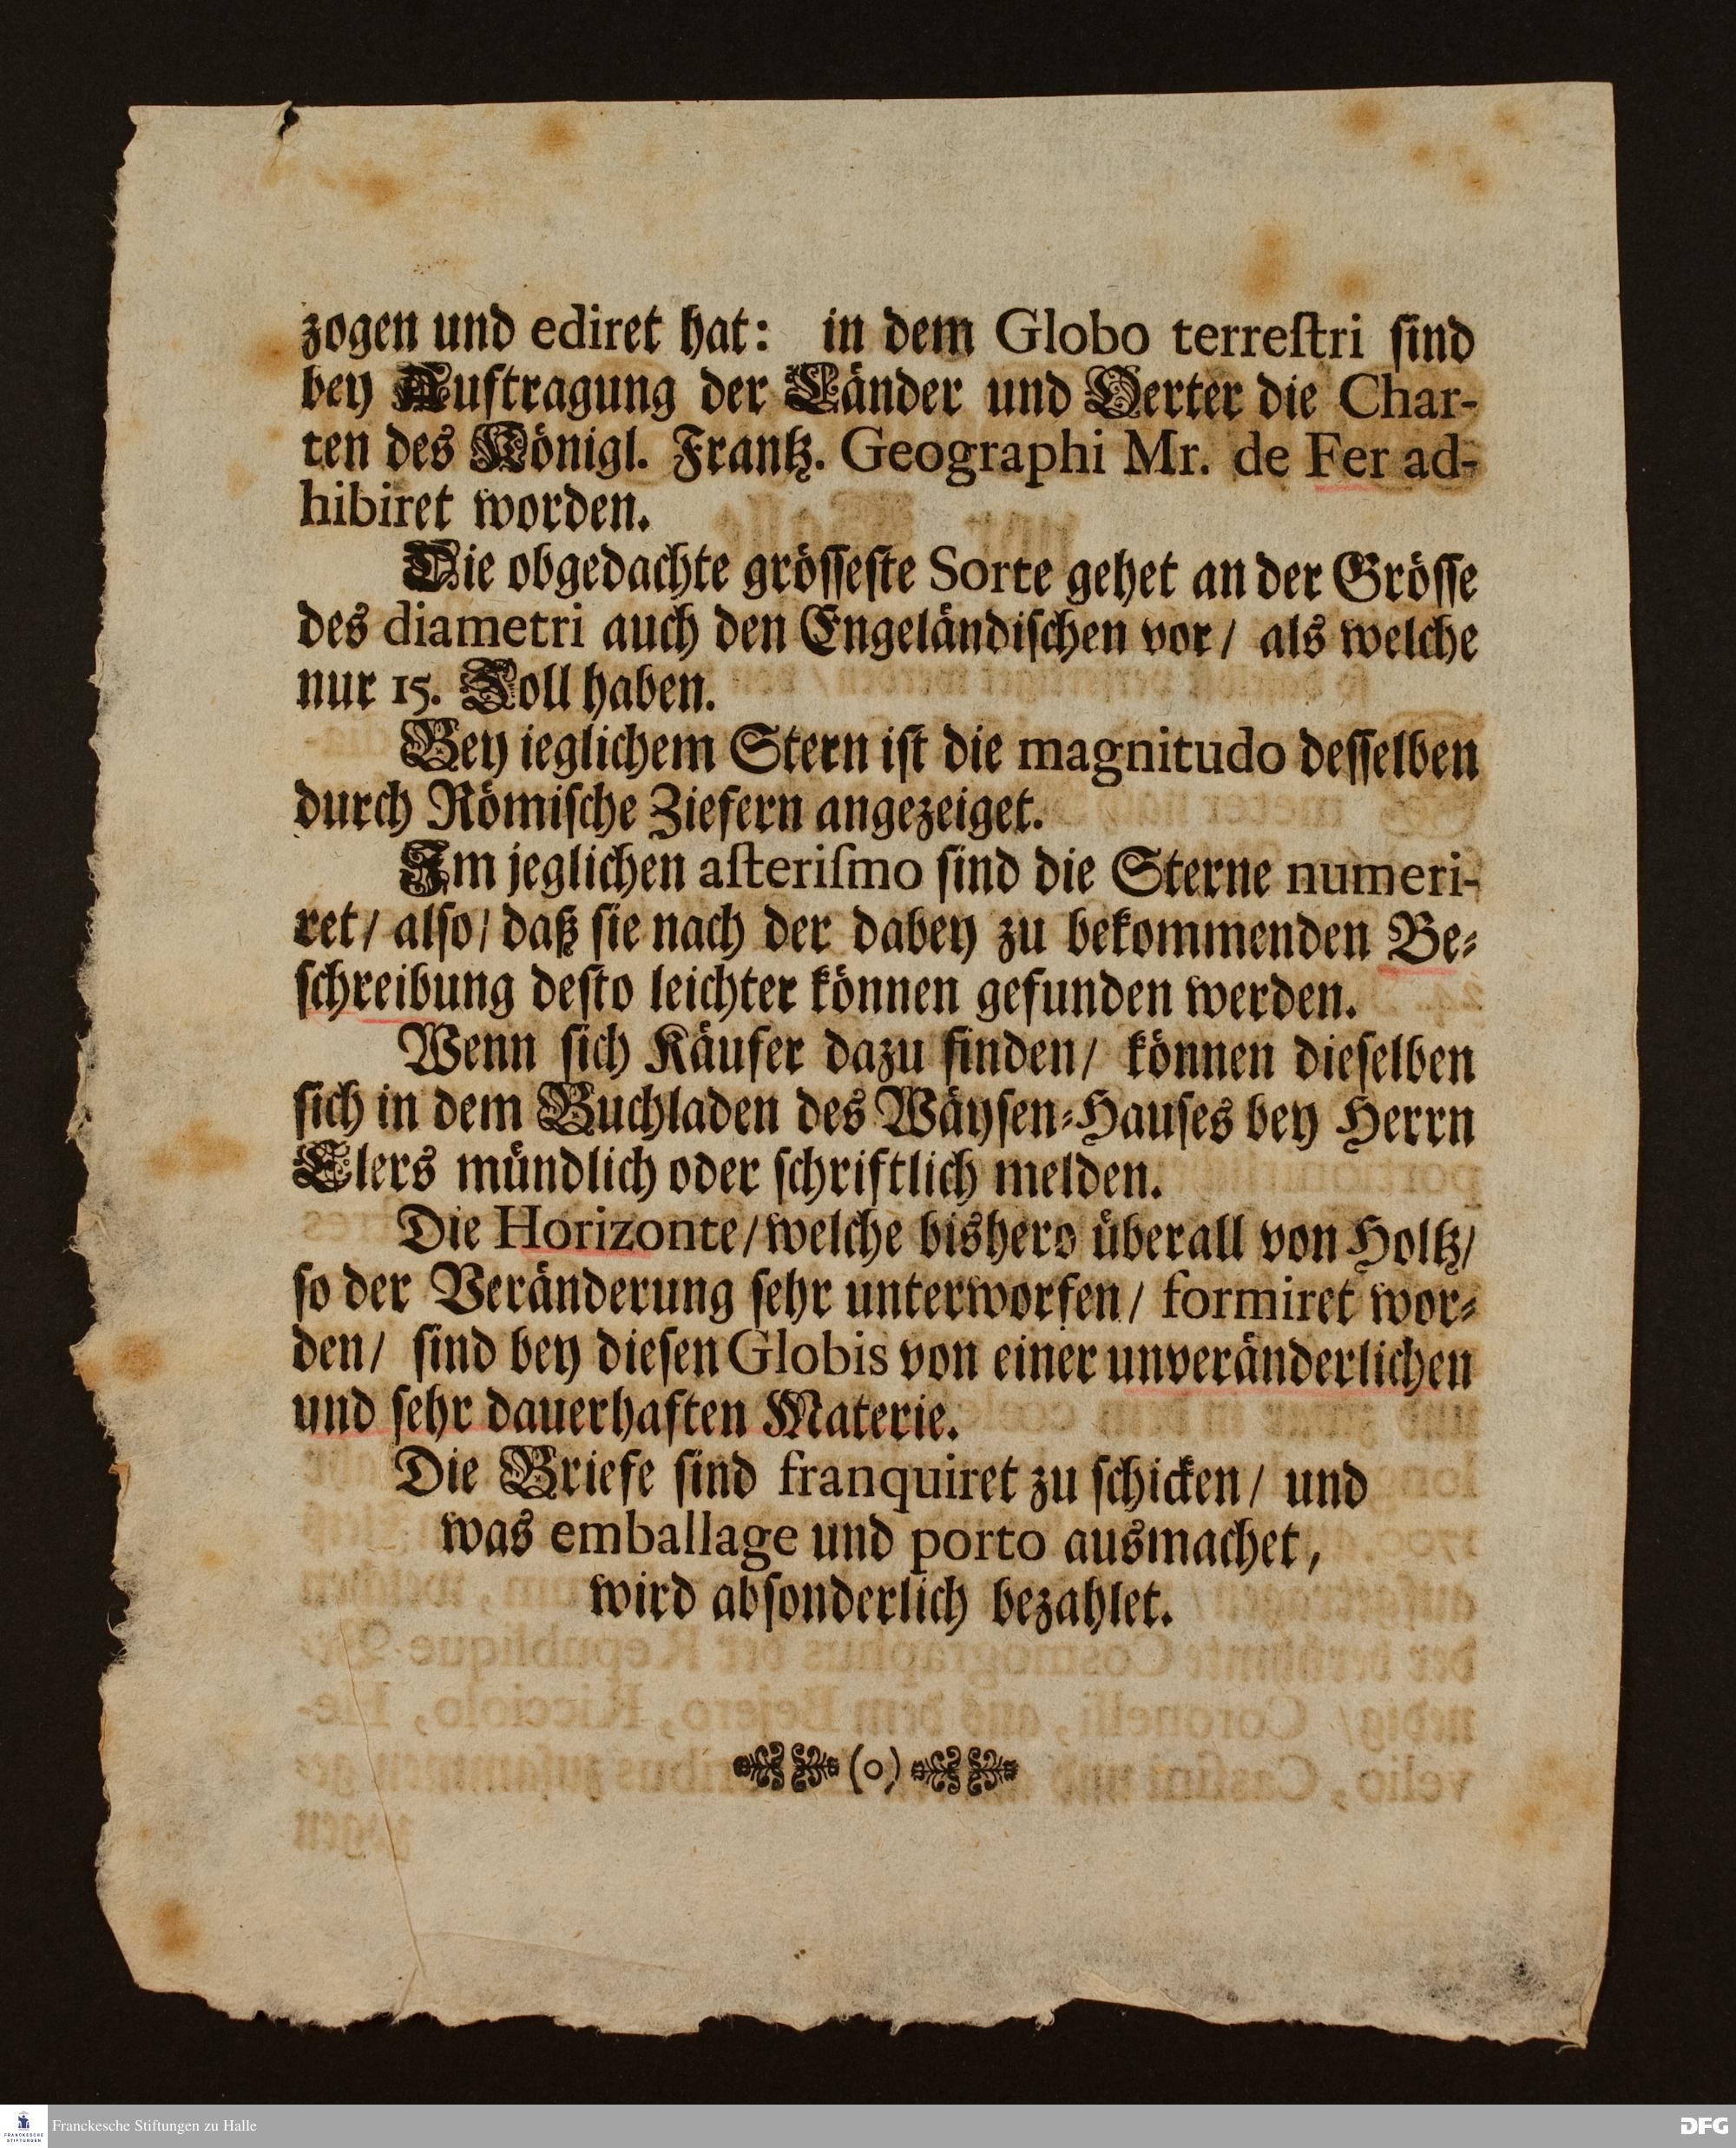 zogen und ediret hat: in dem Globo terreſtri ſind
bey Auftragung der Länder und Oerter die Char-
ten des Königl. Frantz. Geographi Mr. de Fer ad-
hibiret worden.
Die obgedachte gröſſeſte Sorte gehet an der Gröſſe
des diametri auch den Engeländiſchen vor/ als welche
nur 15. Zoll haben.
Bey ieglichem Stern iſt die magnitudo deſſelben
durch Römiſche Ziefern angezeiget.
Im jeglichen aſteriſmo ſind die Sterne numeri-
ret/ alſo/ daß ſie nach der dabey zu bekommenden Be-
ſchreibung deſto leichter können gefunden werden.
Wenn ſich Käufer dazu finden/ können dieſelben
ſich in dem Buchladen des Wäyſen-Hauſes bey Herrn
Elers mündlich oder ſchriftlich melden.
Die Horizonte/ welche bishero überall von Holtz/
ſo der Veränderung ſehr unterworfen/ formiret wor-
den/ ſind bey dieſen Globis von einer unveränderlichen
und ſehr dauerhaften Materie.
Die Briefe ſind franquiret zu ſchicken/ und
was emballage und porto ausmachet,
wird abſonderlich bezahlet.
(o)
Franckesche Stiftungen zu Halle
FRANCKESCHE
STIFTUNGEN
DFG